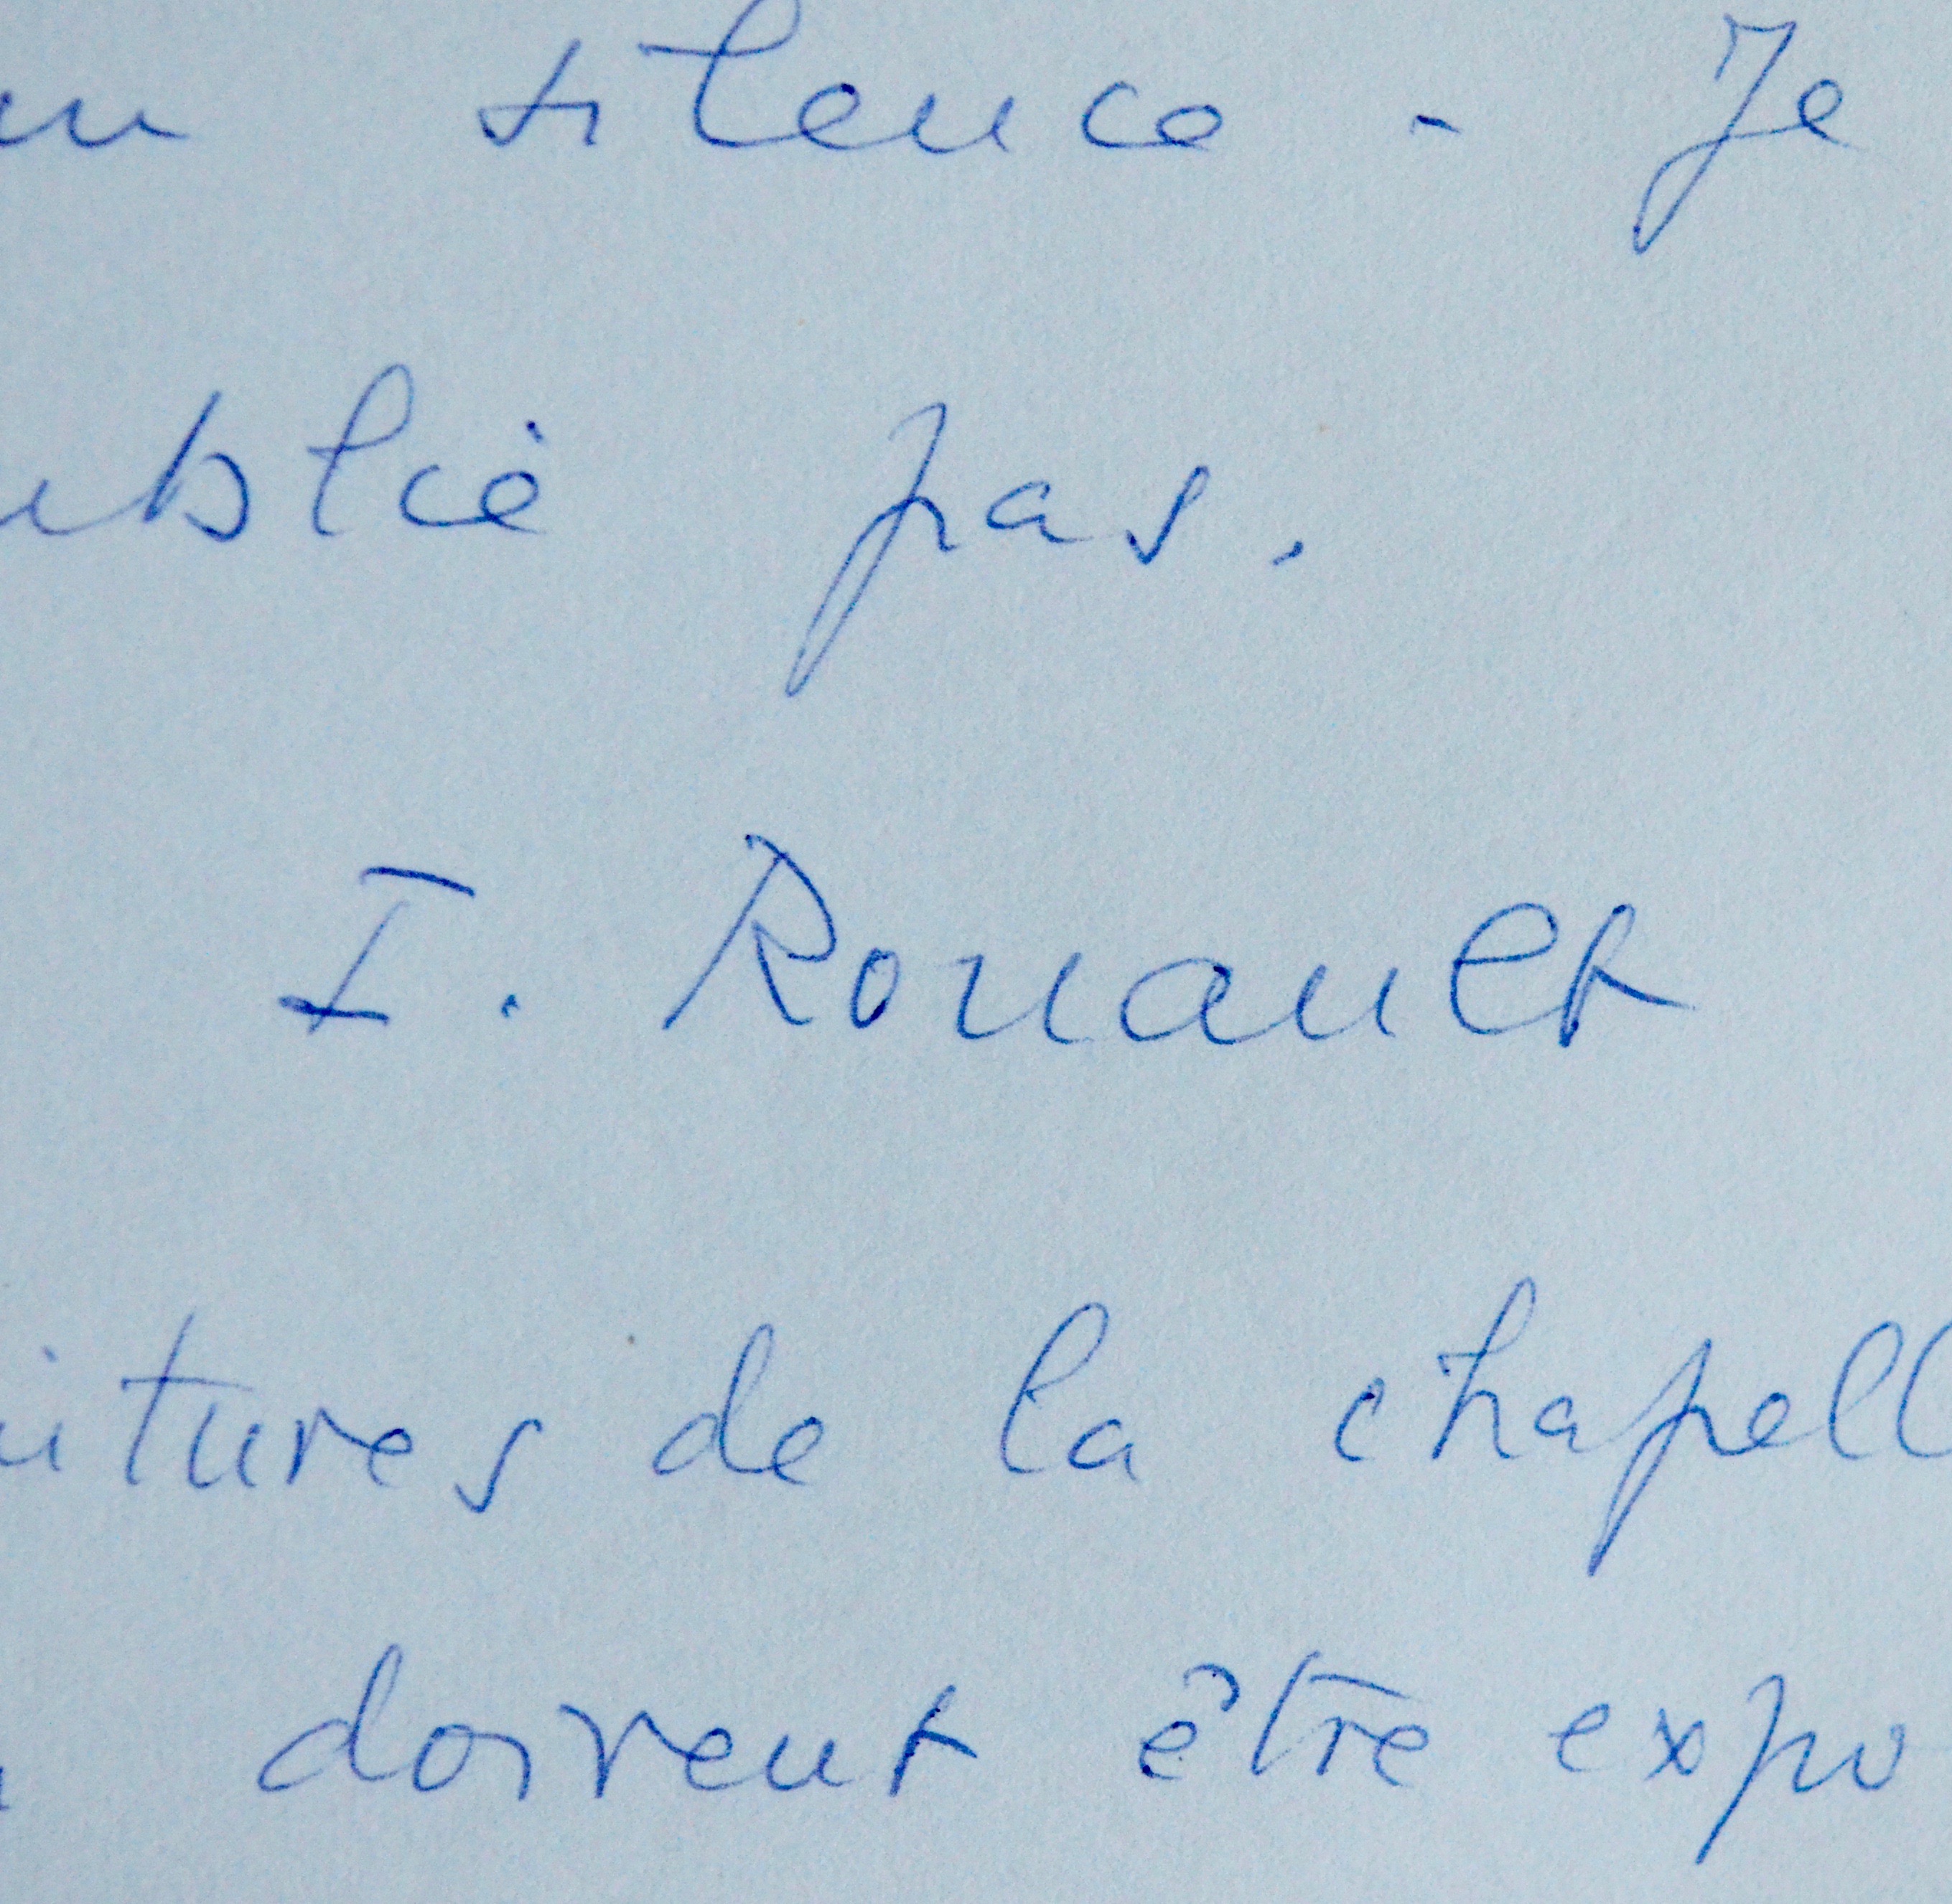 silence - Je
ublié pas.
I. Rouault
itures de la chapell
doivent être expo